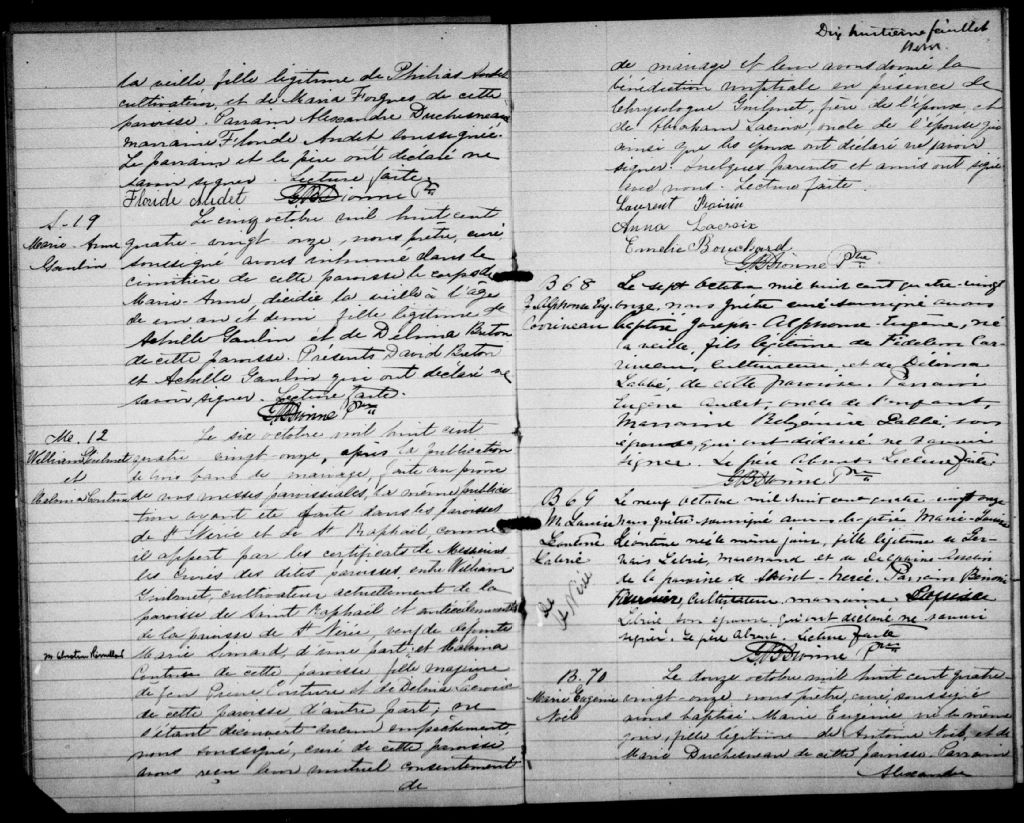 la veille fille légitime de Philias Audet
cultivateur, et de Maria Forgues de cette
paroisse. Parrain Alexandre Duchesneau
marraine Floride Audet soussignée.
Le parrain et le père ont déclaré ne
savoir signer. Lecture faite.
Floride Audet Dionne Ptre
S-19
Marie-Anne
Gaulin
Le cinq octobre mil huit cent
quatre-vingt onze, nous prêtre, curé,
soussigné avons inhumé dans le
cimetière de cette paroisse le corps de
Marie-Anne, décédée la veille à l'âge
de un an et demi fille légitime de
Achille Gaulin et de Delima Breton
de cette paroisse. Présents David Breton
et Achille Gaulin qui ont déclaré ne
savoir signer. Lecture faite.
Dionne Ptre
M. 12
William Goulmet
et
Couture
Le six octobre mil huit cent
quatre vingt-onze, après la publication
de trois bans de mariage, faite au prône
de nos messes paroissiales, la même publica
tion ayant été faite dans les paroisses
de St Nérée et de St Raphaël comme
il appert par les certificats de Messieurs
les Curés des dites paroisses, entre William
Goulmet cultivateur actuellement de la
paroisse de Saint Raphaël et
de la paroisse de St Nérée, veuf de défunte
Marie d'une part; et
Couture de cette paroisse fille majeure
de Jean Pierre Couture et de Delima Lacroix
de cette paroisse d'autre part; ne
s'étant découvert aucun empêchement,
nous soussigné, curé de cette paroisse
avons reçu leur mutuel consentement
de
Dix huitième feuillet
de mariage et leur avons donné la
bénédiction nuptiale en présence de
Chrysologue Goulmet, père de l'époux et
de Abraham Lacroix, oncle de l'épouse qui
ainsi que les époux ont déclaré ne savoir
signer. Quelques parents et amis ont signé
avec nous. Lecture faite.
Laurent
Anna Lacroix
Emelie Bouchard
Dionne Ptre
B 68
J. Alphonse Eug.
Corriveau
Le sept Octobre mil huit cent quatre-vingt
onze, nous prêtre curé soussigné avons
baptisé Joseph-Alphonse-Eugène, né
la veille, fils légitime de Fidelm Cor
riveau, Cultivateur, et de
Labbé, de cette paroisse. Parrain
Eugène Audet, oncle de l'enfant,
Marraine Labbé, son
épouse, qui ont déclaré ne savoir
signer. Le père absent. Lecture faite
Dionne Ptre
B 69
M. Louise
Léontine
Labrie
de
St Nérée
Le neuf Octobre mil huit cent quatre-vingt onze
Nous prêtre soussigné avons baptisé Marie-Louise
Léontine née le même jour, fille légitime de
Labrie, marchand et de
de la paroisse de Saint-Nérée. Parrain
Fournier, Cultivateur marraine
Labrie son épouse qui ont déclaré ne savoir
signer. Le père absent. Lecture faite
Dionne Ptre
B. 70
Marie Eugénie
Noël
Le douze octobre mil huit cent quatre-
vingt-onze, nous prêtre, curé, soussigné
avons baptisé Marie Eugénie née le même
jour, fille légitime de Antoine Noël, et de
Marie Duchesneau de cette paroisse. Parrain
Alexandre